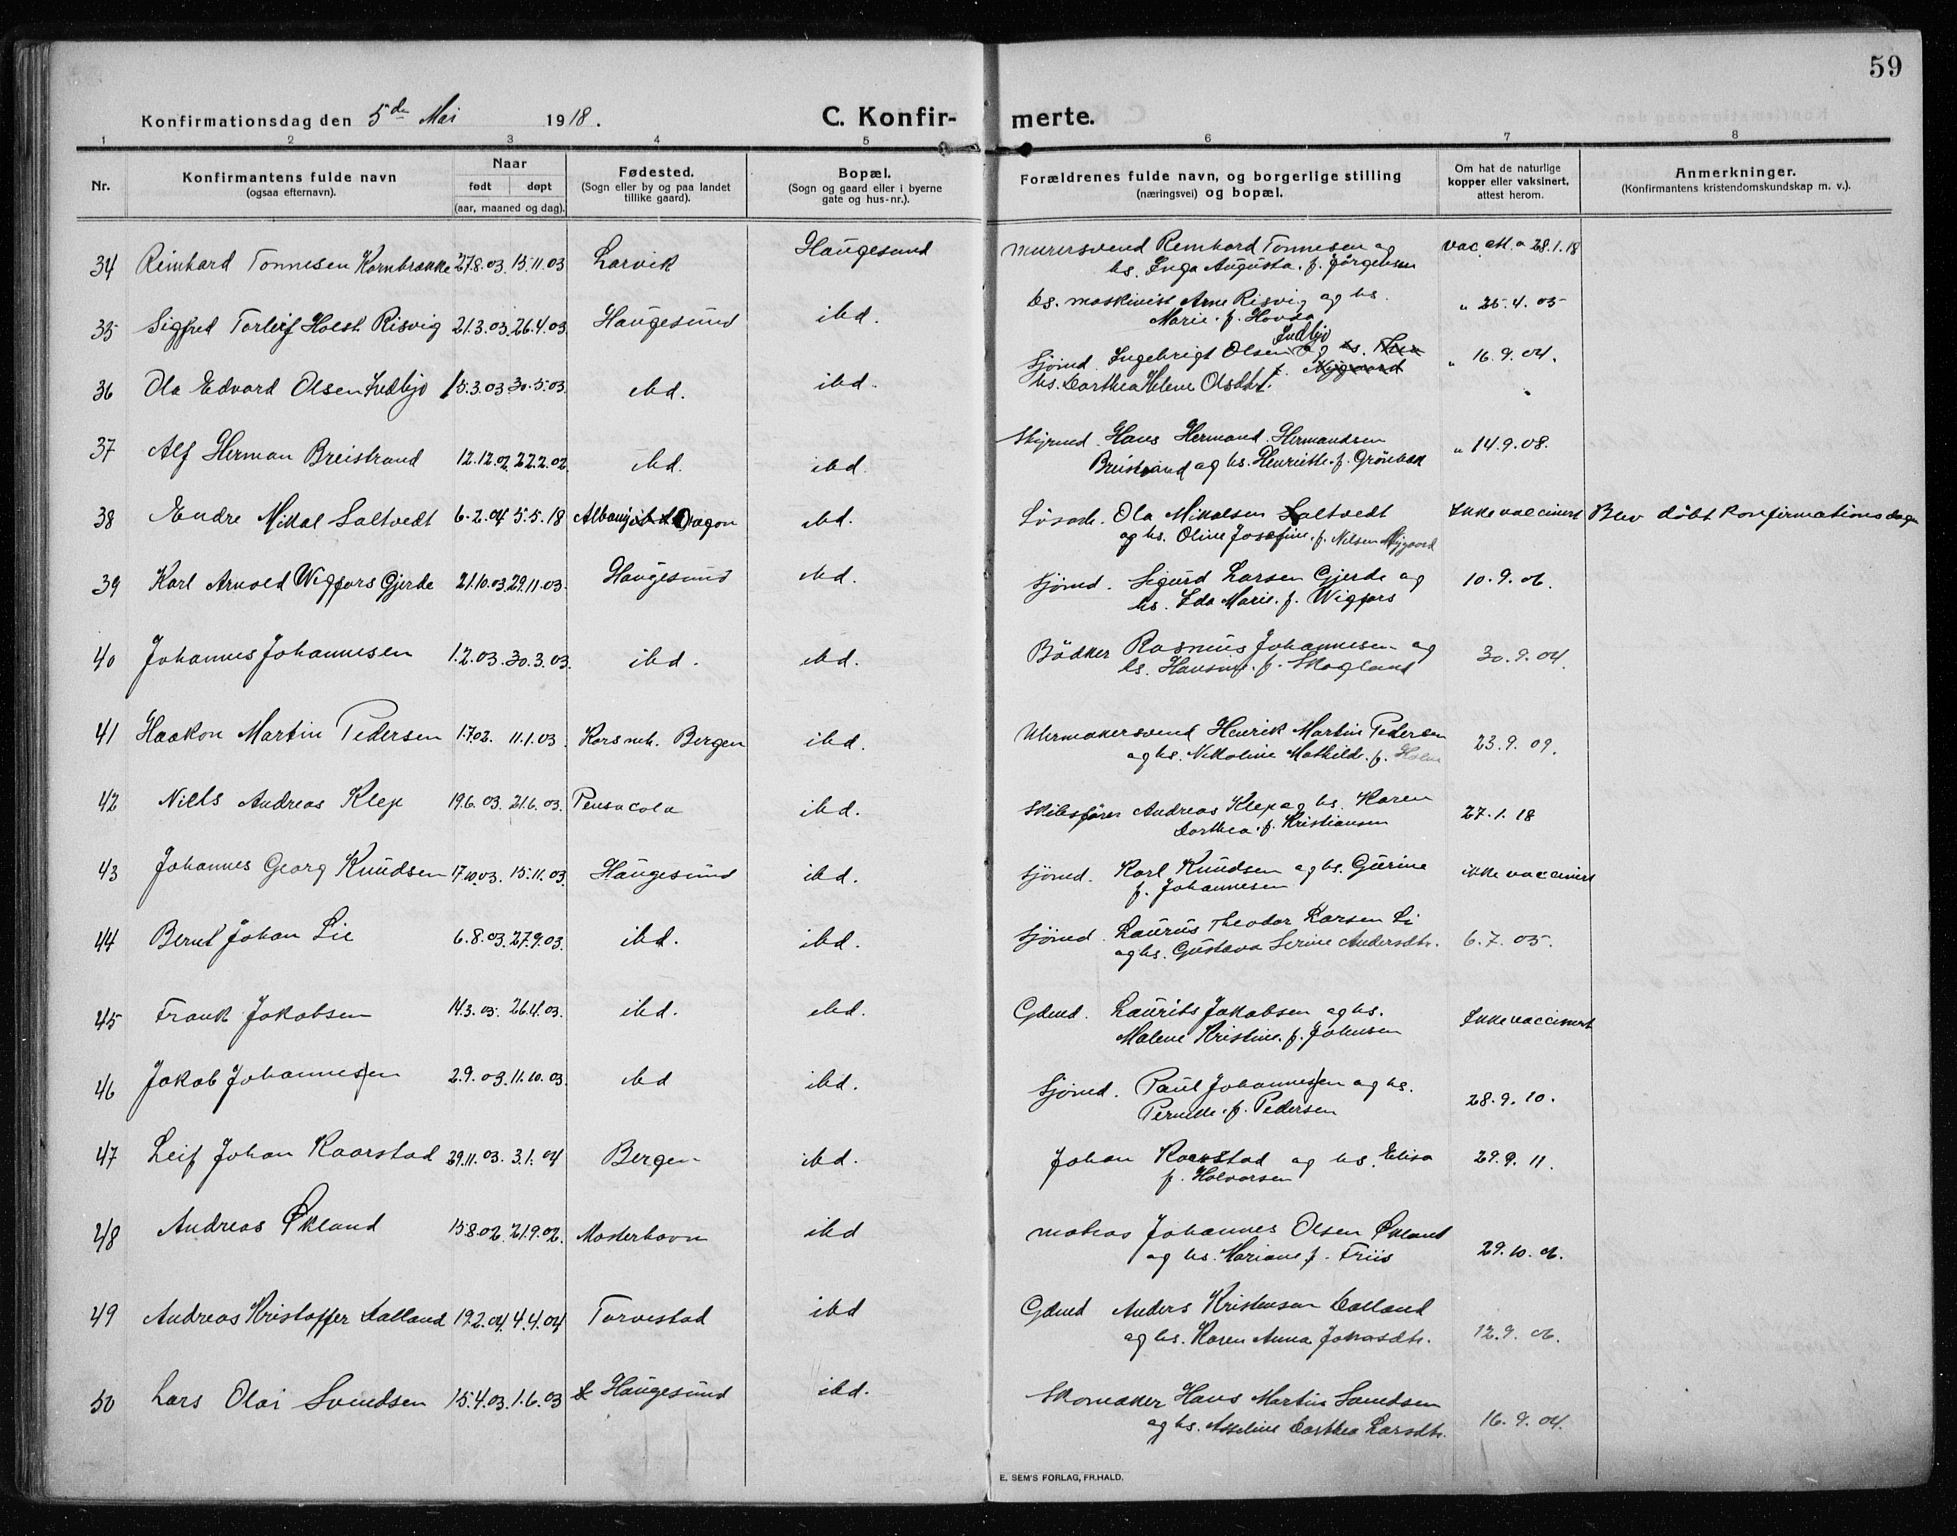 59
Konfirmationsdag den 5de Mai 1918. C. Konfirmerte.
1 2 3 4 5 6 7 8
Nr. Konfirmantens fulde navn (ogsaa efternavn). Naar født døpt (aar, maaned og dag). Fødested. (Sogn eller by og paa landet tillike gaard). Bopæl. (Sogn og gaard eller i byerne gate og hus-nr.). Forældrenes fulde navn, og borgerlige stilling (næringsvei) og bopæl. Om hat de naturlige kopper eller vaksinert, attest herom. Anmerkninger. (Konfirmantens kristendomskundskap m. v.).
34 Reinhard Tønnesen Kornbrække 27.8.03. 15.11.03 Larvik Haugesund Murersvend Reinhard Tønnesen og vac. att. a 28.1.18
hs. Inga Augusta f. Jørgensen
35 Sigfred Torleif Holst Risvig 21.3.03. 26.4.03 Haugesund ibd. bs. maskinist Arne Risvig og hs. " 25.4.05
Marie f. Hovda
36 Ola Edvard Olsen Indbjo 15.3.03. 30.5.03 ibd. ibd. Sjømd. Ingebrigt Olsen Indbjo og " 16.9.04.
hs. Dorthea Helene Olsdt. f. Nygaard
37 Alf Herman Breistrand 12.12.02. 22.2.02 ibd. ibd. Styrmd. Hans Hermand Hermandsen " 14.9.08.
Breistrand og hs. Henriette f. Grönbæk
38 Endre Mikal Saltvedt 6.2.04 5.5.18 Albany Oregon ibd. Løsarb. Ola Mikalsen Saltvedt Ikke vaccinert Blev døbt konfirmationsdagen
og hs. Oline Josefine f. Nilsen Nygaard
39 Karl Arnold Wigfors Gjerde 21.10.03. 29.11.03. Haugesund ibd. Sjömd. Sigurd Larsen Gjerde og 10.9.06.
hs. Ida Marie f. Wigfors
40 Johannes Johannesen 1.2.03. 30.3.03. ibd. ibd. Bödker Rasmus Johannesen og 30.9.04.
hs. Hansine f. Skogland
41 Haakon Martin Pedersen 1.7.02. 11.1.03. Korsmh. Bergen ibd. Uhrmakersvend Henrik Martin Pedersen 23.9.09.
og hs. Nikoline Mathilde f. Holm
42 Niels Andreas Klep 19.6.03. 21.6.03. Pensacola ibd. Skibsfører Andreas Klep og hs. Karen 27.1.18
Dorthea f. Kristiansen
43 Johannes Georg Knudsen 17.10.03. 15.11.03. Haugesund ibd. Sjömd. Karl Knudsen og hs. Gurine ikke vaccinert
f. Johannesen
44 Bernt Johan Lie 6.8.03. 27.9.03. ibd. ibd. Sjömd. Laurus Theodor Larsen Li 6.7.05.
og hs. Gustava Serine Andersdtr.
45 Frank Jakobsen 14.3.03. 26.4.03. ibd. ibd. Gdmd. Laurits Jakobsen og hs. Ikke vaccinert
Malene Kristine f. Johnsen
46 Jakob Johannessen 2.9.03. 11.10.03. ibd ibd. Sjömd. Paul Johannessen og hs. 28.9.10.
Pernille f. Pedersen
47 Leif Johan Kaarstad 29.11.03. 3.1.04 Bergen ibd. Johan Kaarstad og hs. Elisa 29.9.11.
f. Halvorsen
48 Andreas Økland 15.8.02. 21.9.02. Mosterhavn ibd matros Johannes Olsen Økland 29.10.06.
og hs. Mariane f. Friis
49 Andreas Kristoffer Dalland 19.2.04. 4.4.04 Torvestad ibd Gdmd Anders Kristensen Dalland 12.9.06.
og hs. Karen Anna Johnsdtr.
50 Lars Olai Svendsen 15.4.03. 1.6.03 Haugesund ibd. Skomaker Hans Martin Svendsen 16.9.04.
og hs. Asseline Dorthea Larsdtr.
E. SEM'S FORLAG, FR.HALD.